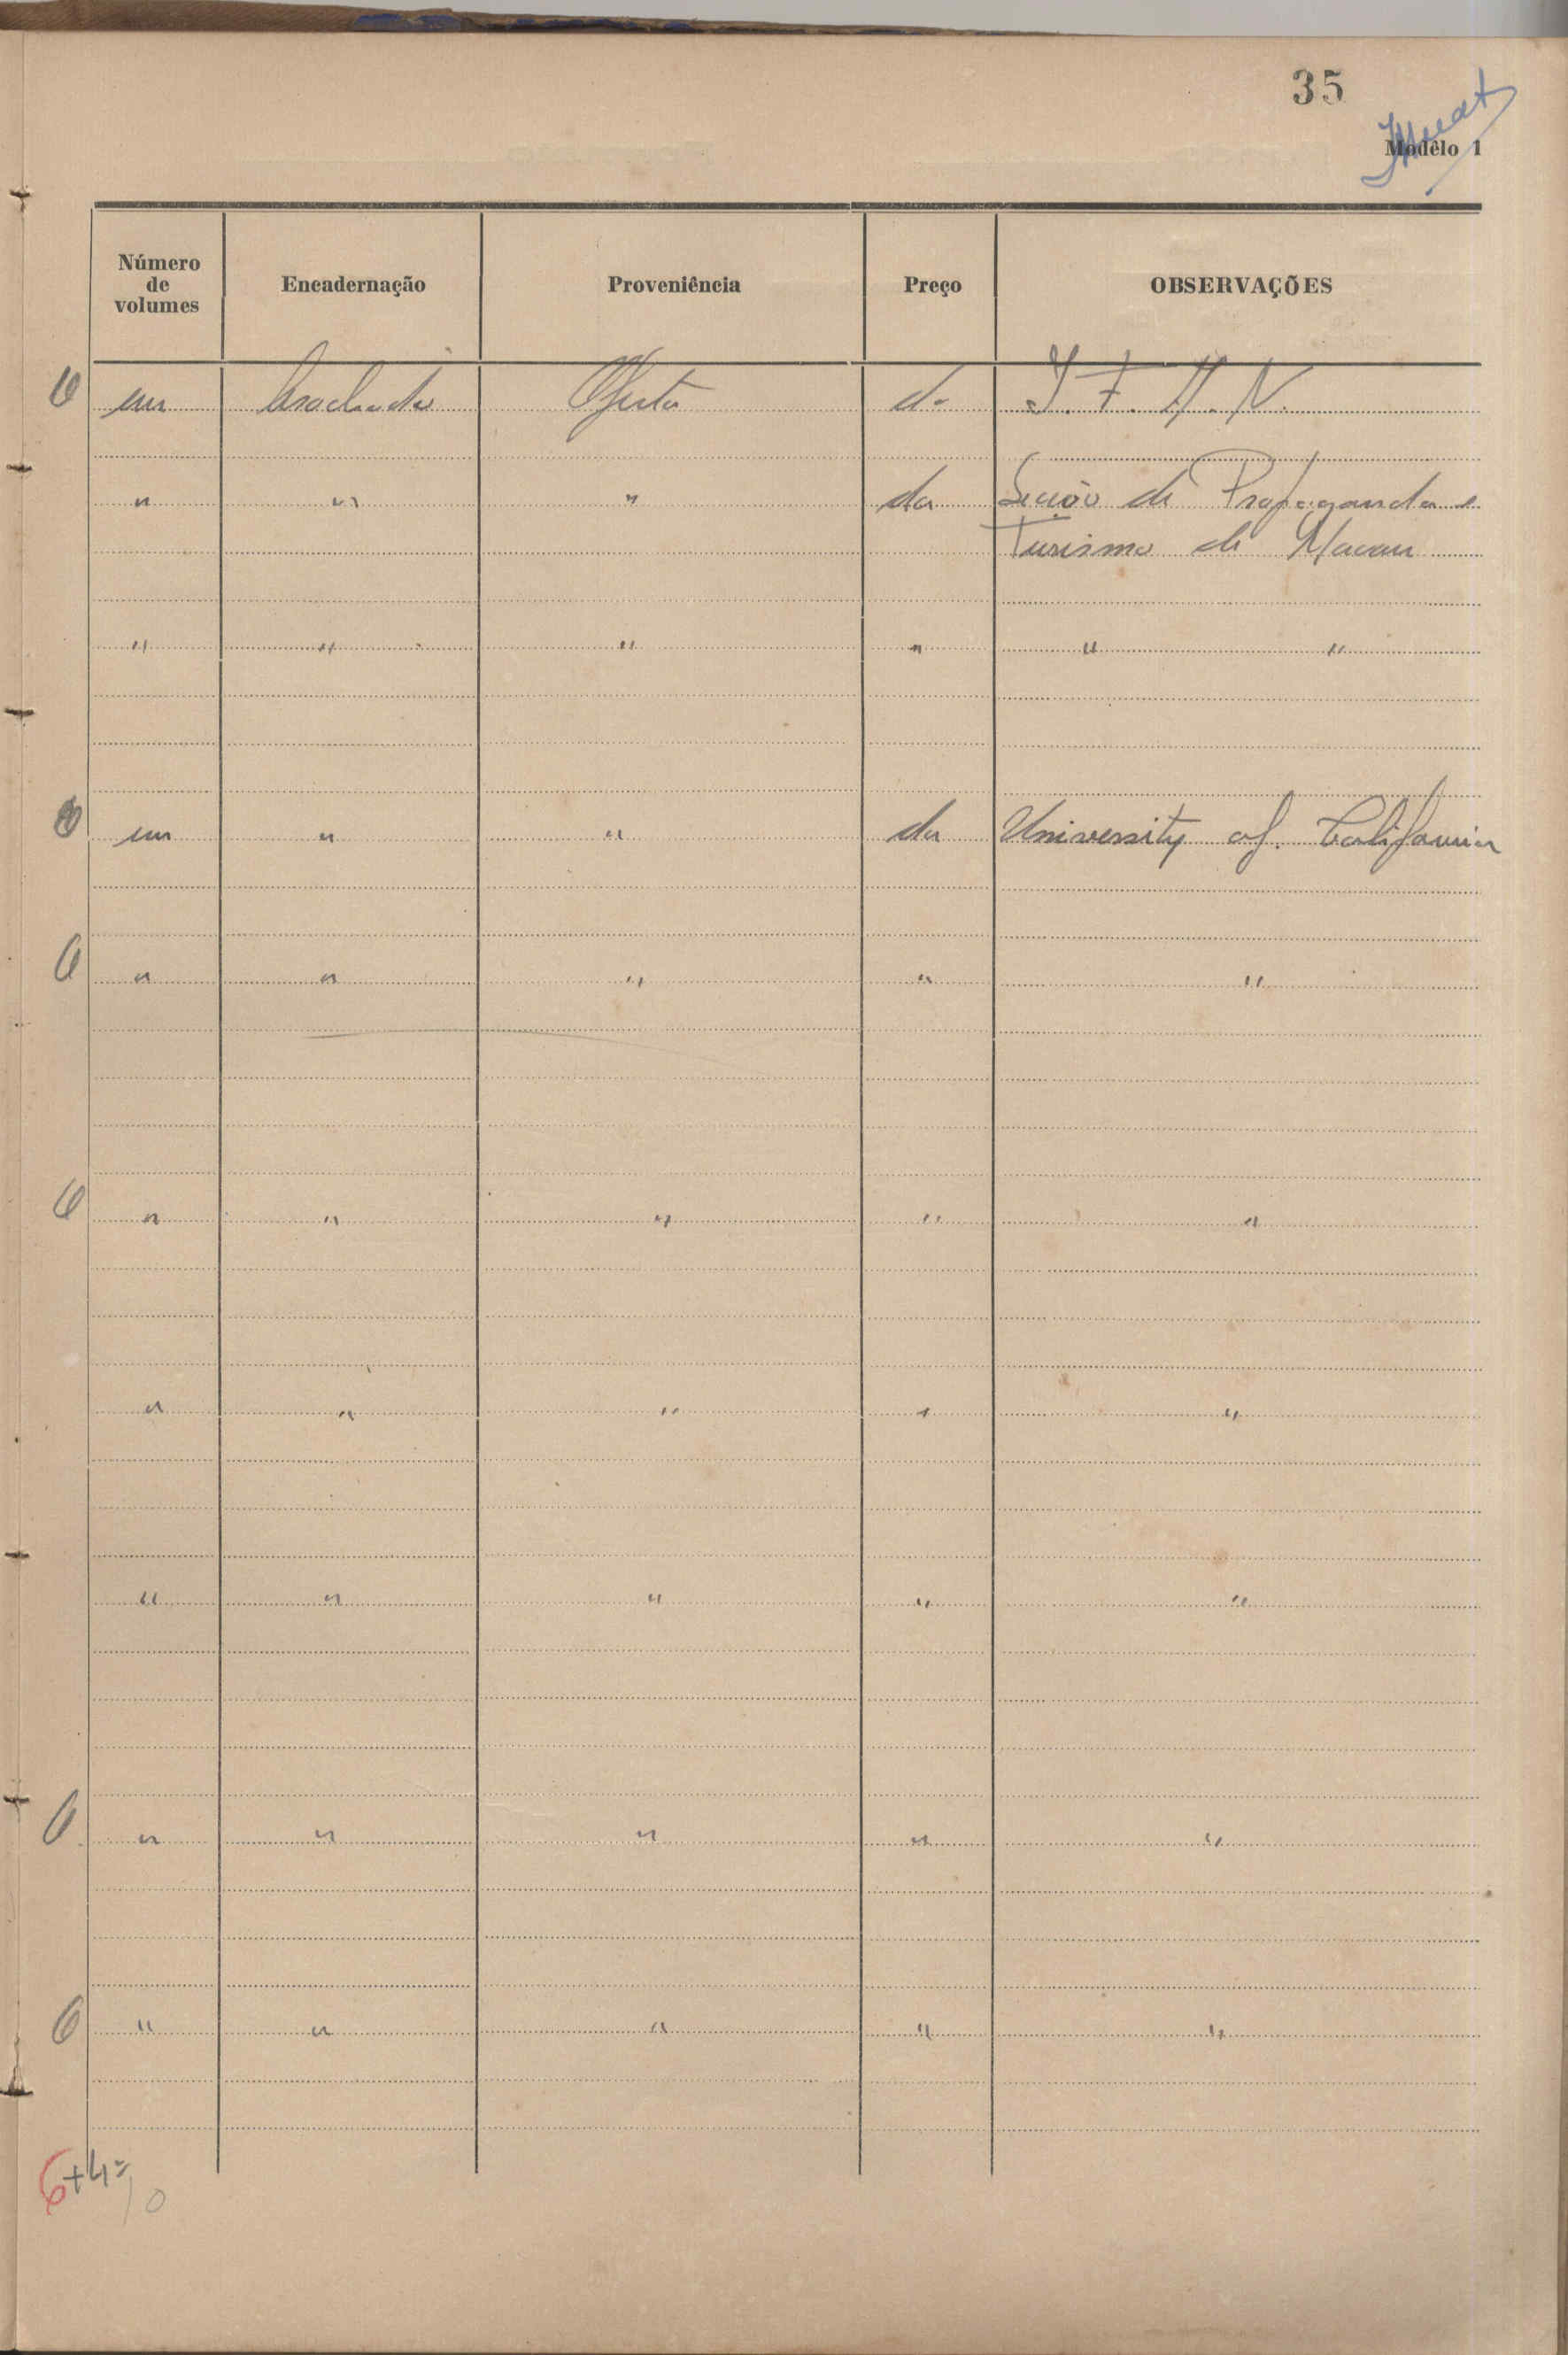 35
Modêlo 1
Número de volumes Encadernação Proveniência Preço OBSERVAÇÕES
um brochado Oferta do I. F. A. N.
" " " da Secção de Propaganda e
Turismo de Macau
" " " " " "
um " " da University of. California
" " " " "
" " " " "
" " " " "
" " " " "
" " " " "
" " " " "
6+4=
10